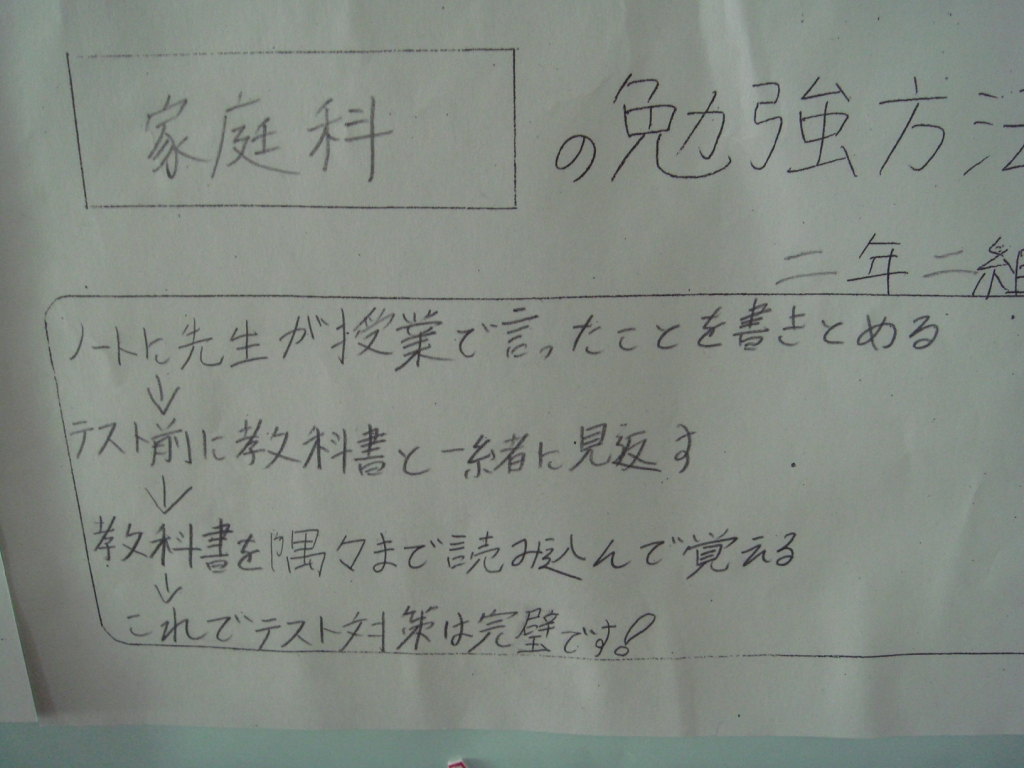 家庭科 の勉強方法
二年二組
ノートに先生が授業で言ったことを書きとめる
↓
テスト前に教科書と一緒に見返す
↓
教科書を隅々まで読み込んで覚える
↓
これでテスト対策は完璧です!